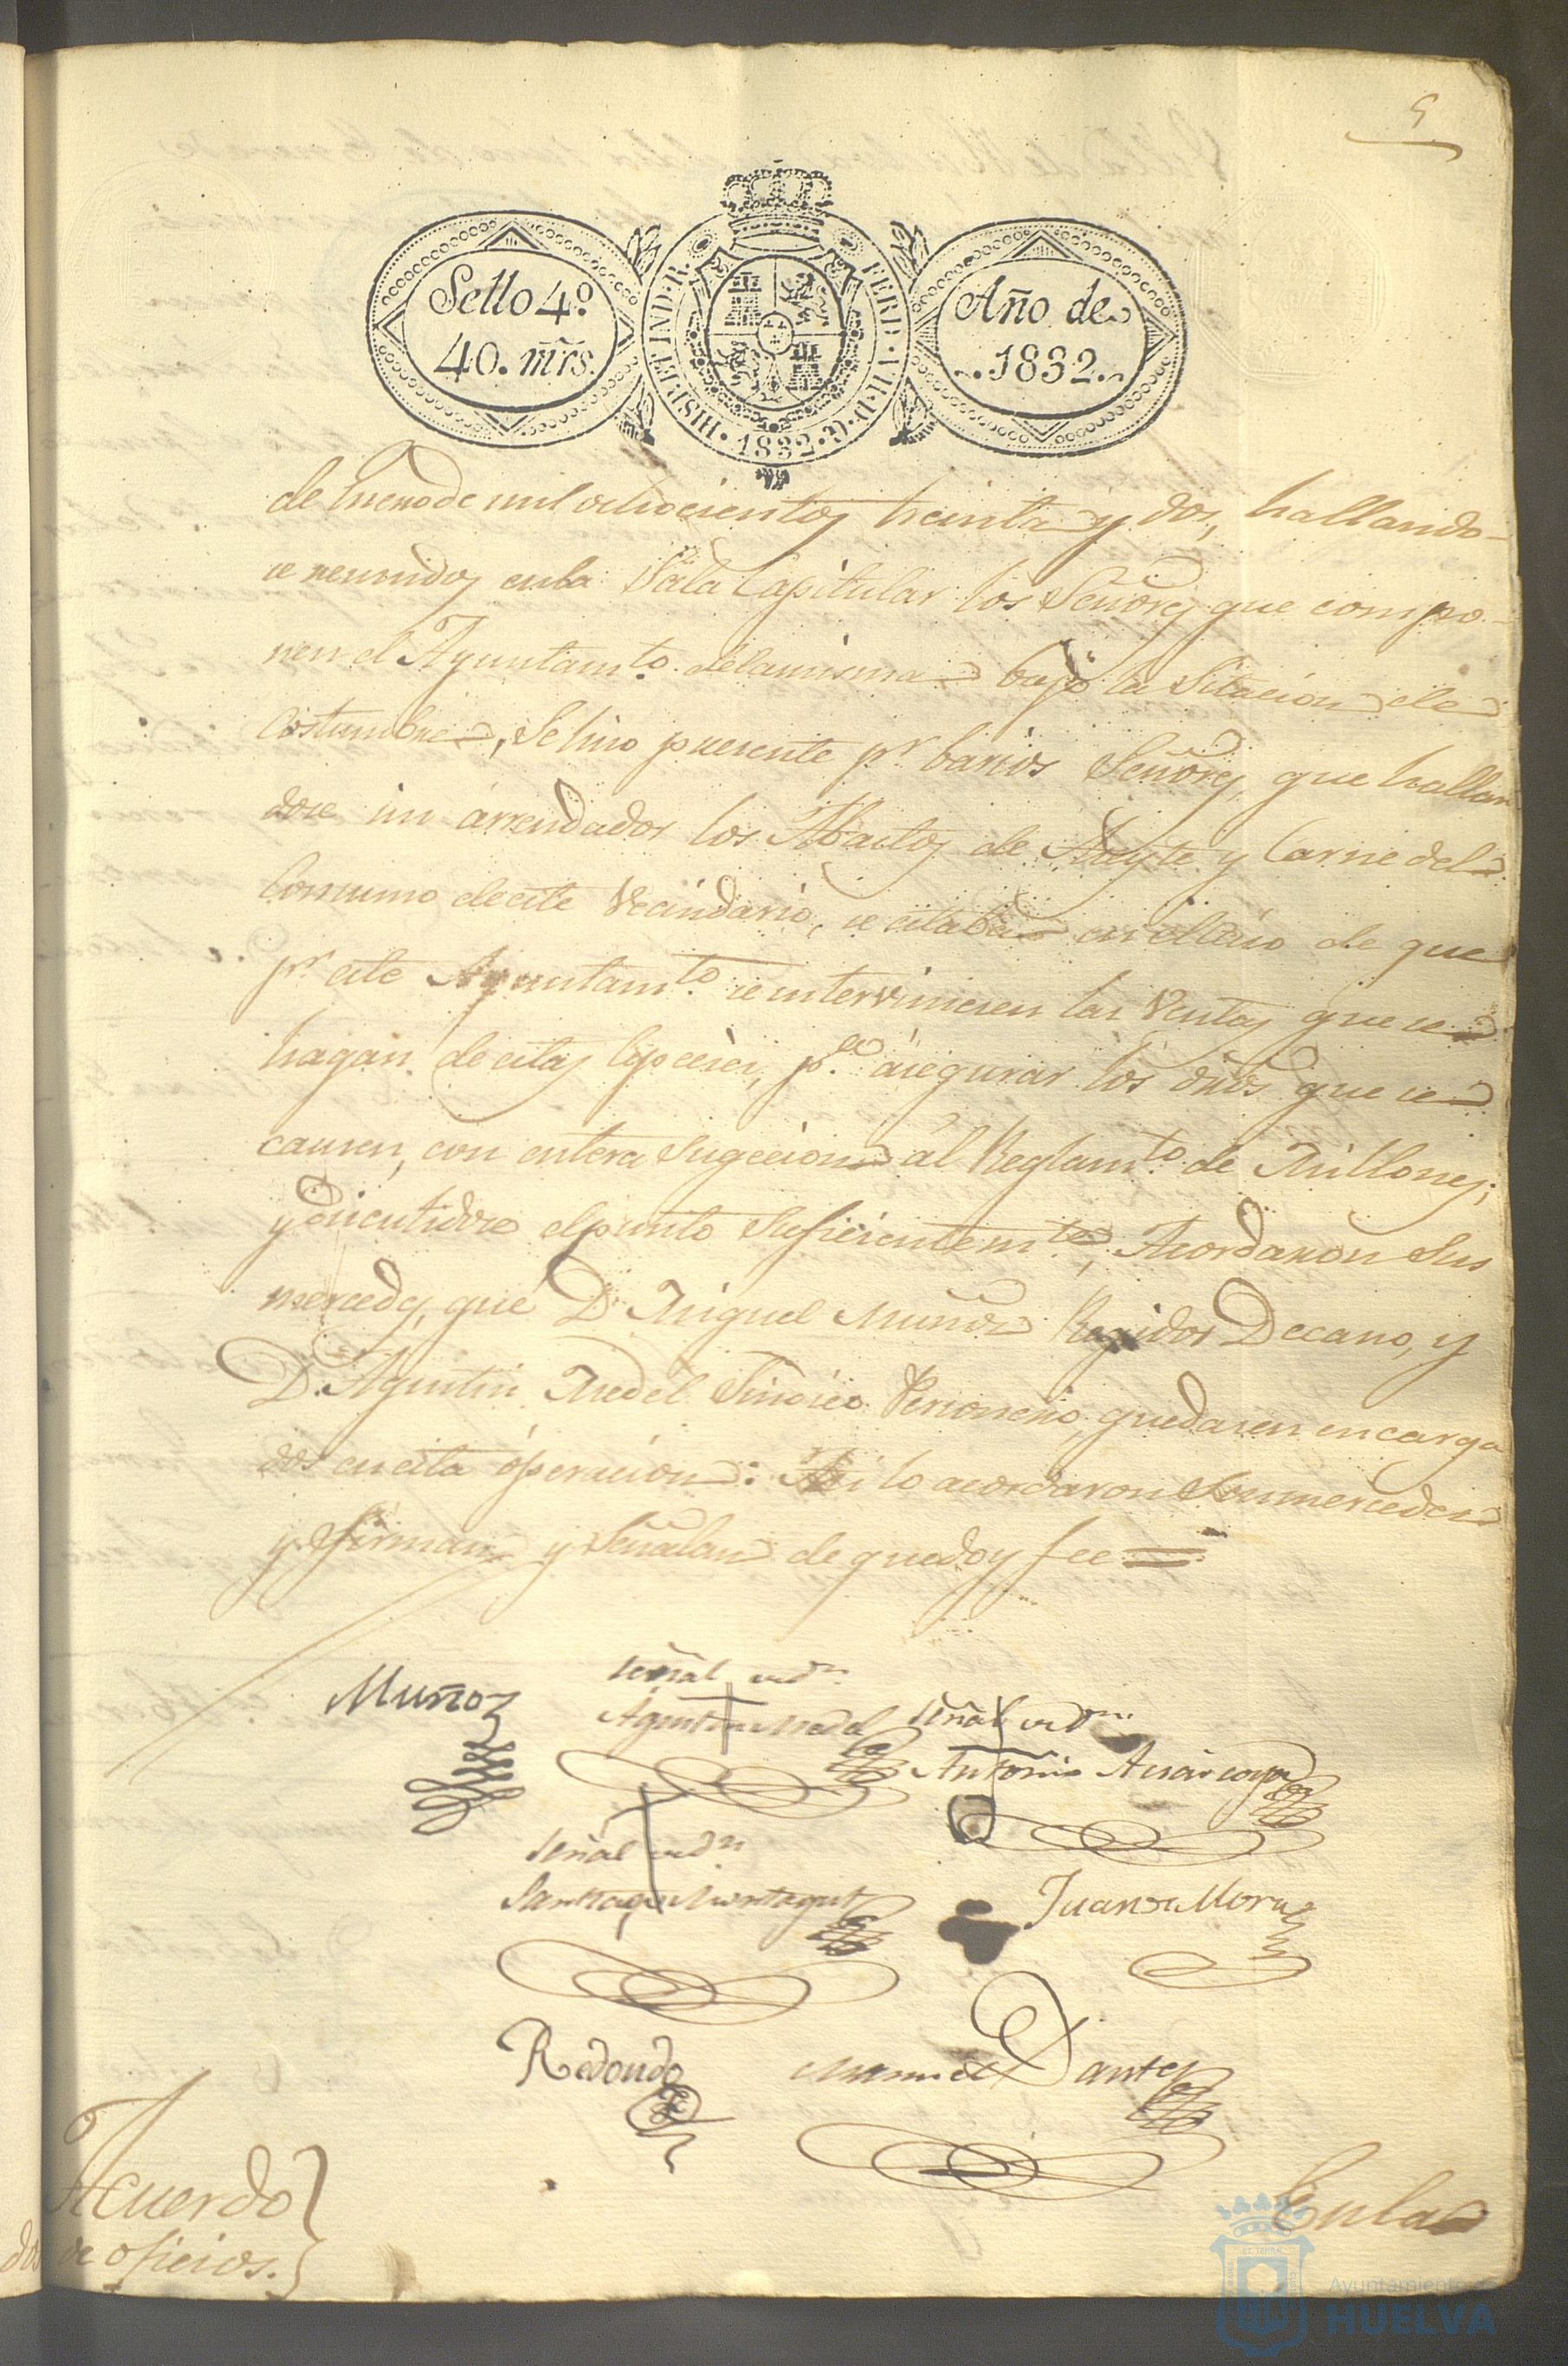 5
Sello 4º
40. mrs.
HISP. ET IND. R. FERD. VII. D. G. 1832.
Año de
1832.
de Enero de mil ochocientos treinta y dos, hallando-
se reunidos en la Sala Capitular los Señores que compo-
nen el Ayuntamto. de la misma bajo la Sitacion de
costumbre, Se hiso presente pr. barios Señores, que hallan
dose sin arrendador los Abastos de Aceyte y Carne del
Consumo de este Vecindario, se estaba en el caso de que
pr. este Ayuntamto. se intervinicsen las Ventas que se
hagan de estas Especies, pa. asegurar los dros que se
causen, con entera sugeccion al Reglamto. de Millones;
y discutidose el punto suficientemte., Acordaron Sus
mercedes, que Dn. Miguel Muñoz Regidor Decano, y
D. Agustin Medel Sindico Personero, quedasen encarga
dos en esta operacion: Asi lo acordaron Sus mercedes
y firman y Señalan de que doy fee =
Muñoz
señal de Dn.
Agustin Medel
señal de Dn.
Antonio
señal de Dn.
Santiago Montagut
Juan de Mora
Redondo
Manuel Dante
Acuerdo
de oficios.
En la
Ayuntamiento
HUELVA